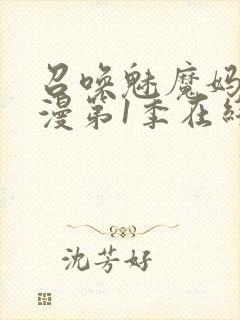 召唤魅魔妈
漫第1季在线
沈芳好